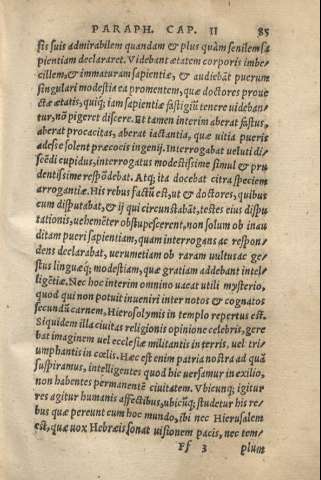 PARAPH. CAP. II 85
sis suis admirabilem quandam & plus quàm senilem sa
pientiam declararet. Videbant ætatem corporis imbe-
cillem, & immaturam sapientiæ, & audiebāt puerum
singulari modestia ea promentem, quæ doctores proue
ctæ ætatis, quiq; iam sapientiæ fastigiū tenere uideban-
tur, nō pigeret discere. Et tamen interim aberat fastus,
aberat procacitas, aberat iactantia, quæ uitia pueris
adesse solent præcocis ingenij. Interrogabat ueluti di-
scēdi cupidus, interrogatus modestissime simul & pru
dentissime respōdebat. Atq; ita docebat citra speciem
arrogantiæ. His rebus factū est, ut & doctores, quibus
cum disputabat, & ij qui circunstabāt, testes eius dispu
tationis, uehemēter obstupescerent, non solum ob inau
ditam pueri sapientiam, quam interrogans ac respon-
dens declarabat, uerumetiam ob raram uultus ac ge-
stus linguæq; modestiam, quæ gratiam addebant intel-
ligētiæ. Nec hoc interim omnino uacat utili mysterio,
quod qui non potuit inueniri inter notos & cognatos
secundū carnem, Hierosolymis in templo repertus est.
Siquidem illa ciuitas religionis opinione celebris, gere
bat imaginem uel ecclesiæ militantis in terris, uel tri-
umphantis in cœlis. Hæc est enim patria nostra ad quā
suspiramus, intelligentes quod hic uersamur in exilio,
non habentes permanentē ciuitatem. Vbicunq; igitur
res agitur humanis affectibus, ubicūq; studetur his re-
bus quæ pereunt cum hoc mundo, ibi nec Hierusalem
est, quæ uox Hebræis sonat uisionem pacis, nec tem-
Ff 3 plum